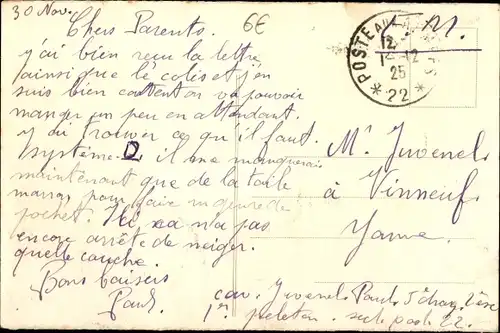 30 Nov.
6€
Chers Parents.
j'ai bien reçu la lettre
ainsi que le colis et j'en
suis bien content on va pouvoir
manger un peu en attendant.
j'ai trouver ce qu'il faut.
système D il me manquerais
maintenant que de la toile
pour faire
pochet. Ici ça n'a pas
encore arrêté de neiger.
quelle couche.
Bons baisers
Paul.
F.M.
POSTE AUX ARMÉES
12
1-12
25
* 22 *
Mr Juvenel
à Vinneuf
Yonne
cav. Juvenel Paul 5e chas.
1er peloton. sect post 22.